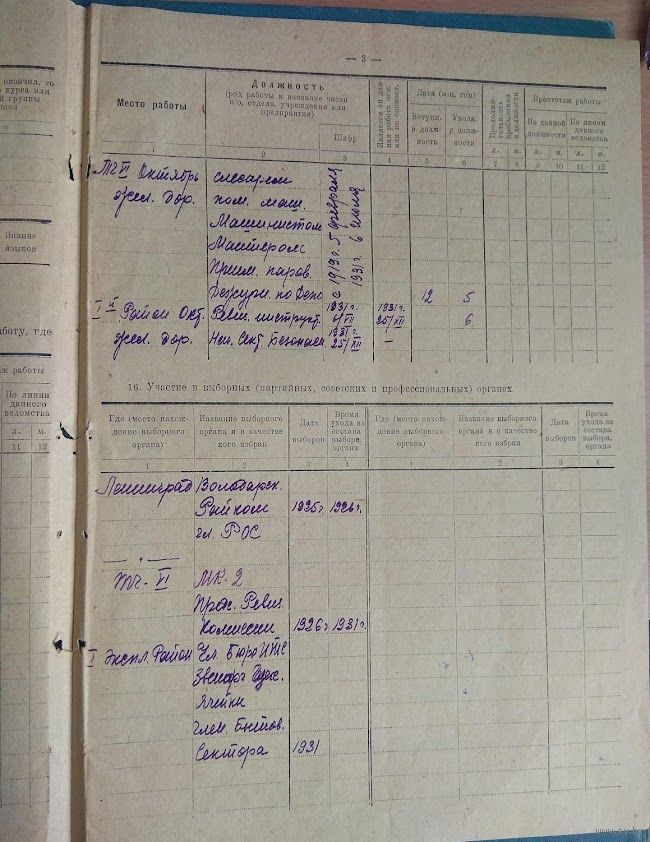 окончил, то
курса или
й группы
Знание
языков
аботу, где
аж работы
По линии
данного
ведомства
л. м.
11 12
— 3 —
Место работы
Должность
(род работы и название части
п/о, отдела, учреждения или
предприятия)
Шифр
Является ли дан-
ная работа осн.
или по совмест.
Дата (м-ц, год)
Вступл.
в долж-
ность
Ухода
с долж-
ности
Продолжи-
тельность
пребывания
в должности
Практстаж работы
По данной
должности
По линии
данного
ведомства
л. м. л. м. л. м.
1 2 3 4 5 6 7 8 9 10 11 12
ТЧ VI Октябрь слесарем
жел. дор. пом. маш.
Машинистом
Мастером
Прием. паров.
Дежурн. по Депо 12 5
с 1919 г. 5 февраля
1931 г. 6 июля
I й Район Окт. Рев. инструкт. 1931 г. 6/VII 1931 г. 25/XII 6
жел. дор. Нач. Сект. Безопасн. 1931 г. 25/XII —
16. Участие в выборных (партийных, советских и профессиональных) органах.
Где (место нахож-
дение выборного
органа)
Название выборного
органа и в качестве
кого избран
Дата
выборов
Время
ухода из
состава
выборн.
органа
Где (место нахож-
дение выборного
органа)
Название выборного
органа и в качестве
кого избран
Дата
выборов
Время
ухода из
состава
выборн.
органа
2 3 4 1 2 3 4
Ленинград Володарск.
Райком 1925 г. 1926 г.
чл. РОС
ТЧ- VI МК-2
Пред. Ревиз.
Комиссии 1926 г. 1931 г.
I Экспл. Район Чл. Бюро ИТС
Ячейки
Член Бытов.
Сектора 1931